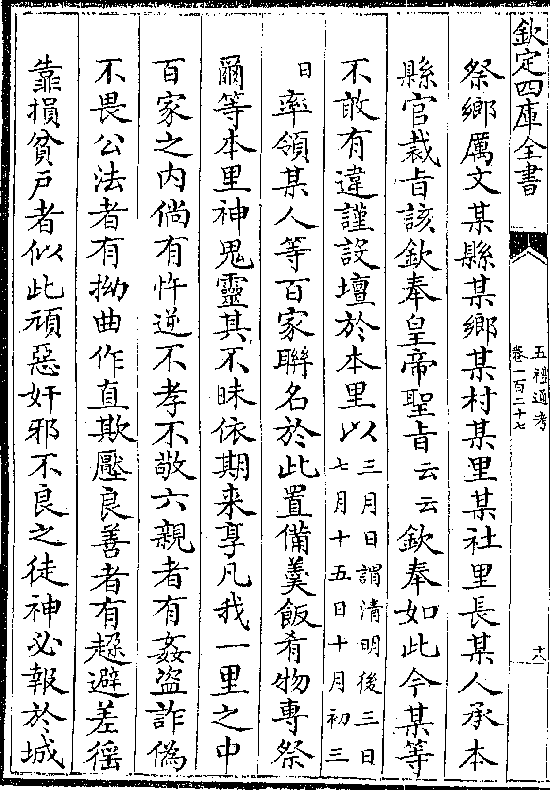 欽定四庫全書
五禮通考
卷一百二十七
十八
祭鄉厲文某縣某鄉某村某里某社里長某人承本
縣官裁旨該欽奉皇帝聖旨云云欽奉如此今某等
不敢有違謹設壇於本里以三月日謂清明後三日
七月十五日十月初三
日率領某人等百家聯名於此置備羹飯肴物專祭
爾等本里神鬼靈其不昧依期来享凡我一里之中
百家之内倘有忤逆不孝不敬六親者有姦盗詐偽
不畏公法者有拗曲作直欺壓良善者有趂避差徭
靠損貧戸者似此頑惡奸邪不良之徒神必報於城